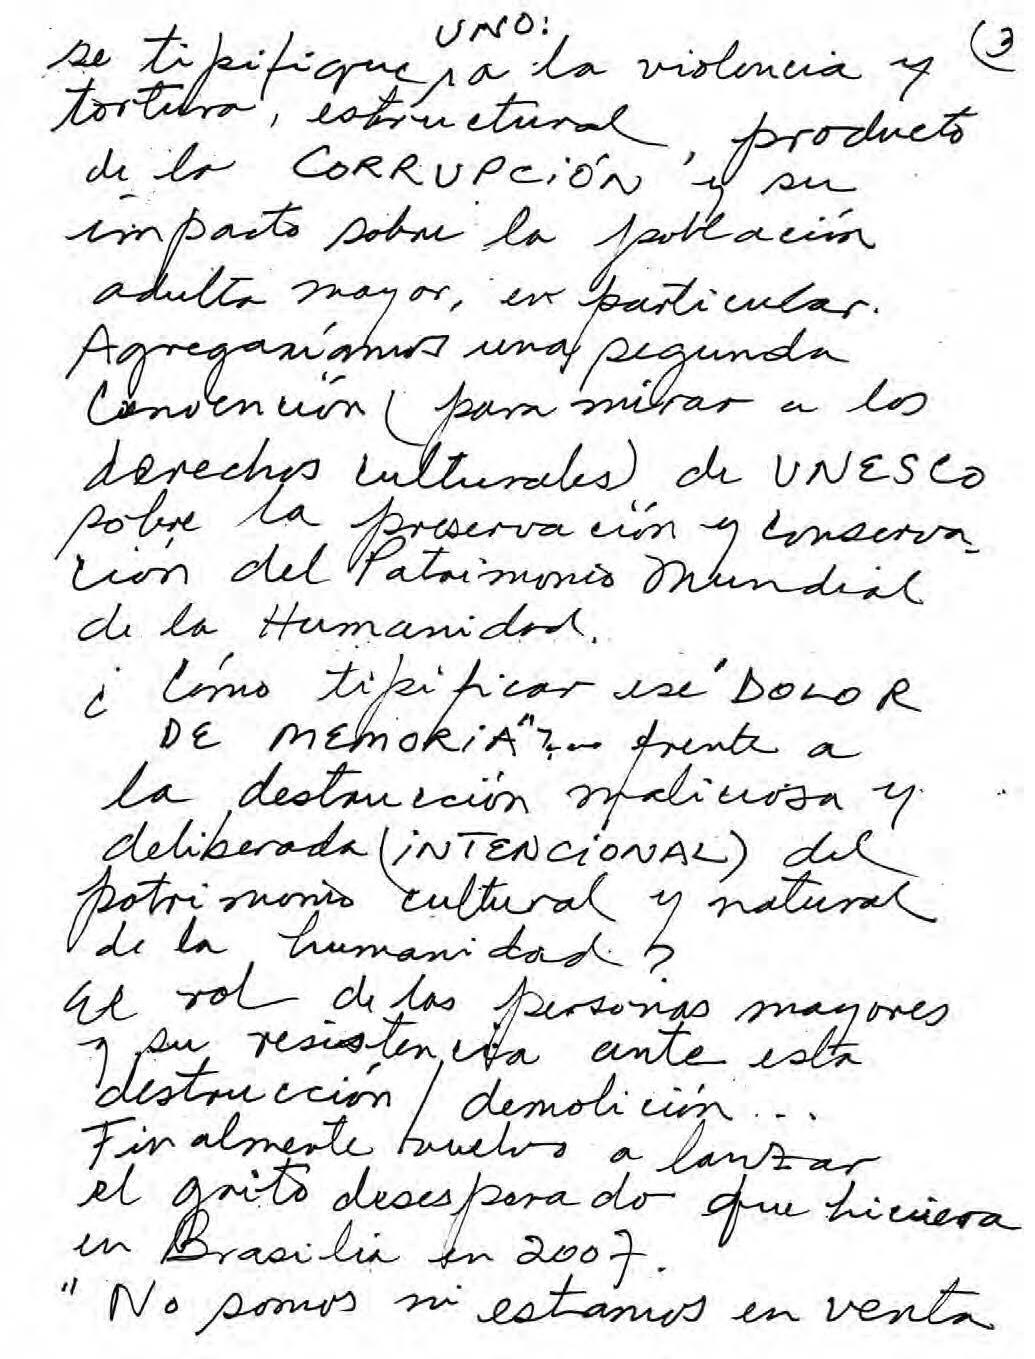 UNO: (3
se tipifique, a la violencia y
tortura, estructural, producto
de la CORRUPCIÓN y su
impacto sobre la población
adulta mayor, en particular.
Agregaríamos una segunda
Convención (para mirar a los
derechos culturales) de UNESCO
sobre la preservación y conserva-
ción del Patrimonio Mundial
de la Humanidad.
¿ Cómo tipificar ese "DOLOR
DE MEMORIA"?... frente a
la destrucción maliciosa y
deliberada (INTENCIONAL) del
patrimonio cultural y natural
de la humanidad?
El rol de las personas mayores
y su resistencia ante esta
destrucción / demolición...
Finalmente vuelvo a lanzar
el grito desesperado que hiciera
en Brasilia en 2007.
"No somos ni estamos en venta